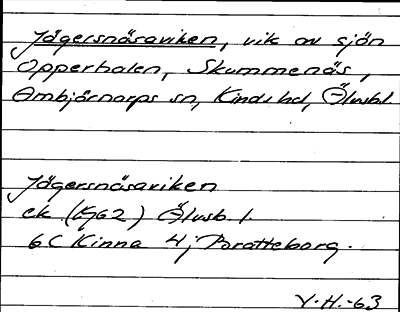 Jägersnäsaviken, vik av sjön
Opperhalen, Skummenäs,
Ambjörnarps sn, Kinds hd, Älvsb.l
Jägersnäsaviken
ek (Kg62) Älvsb l.
6C Kinna 4j Bratteborg.
V.H.-63